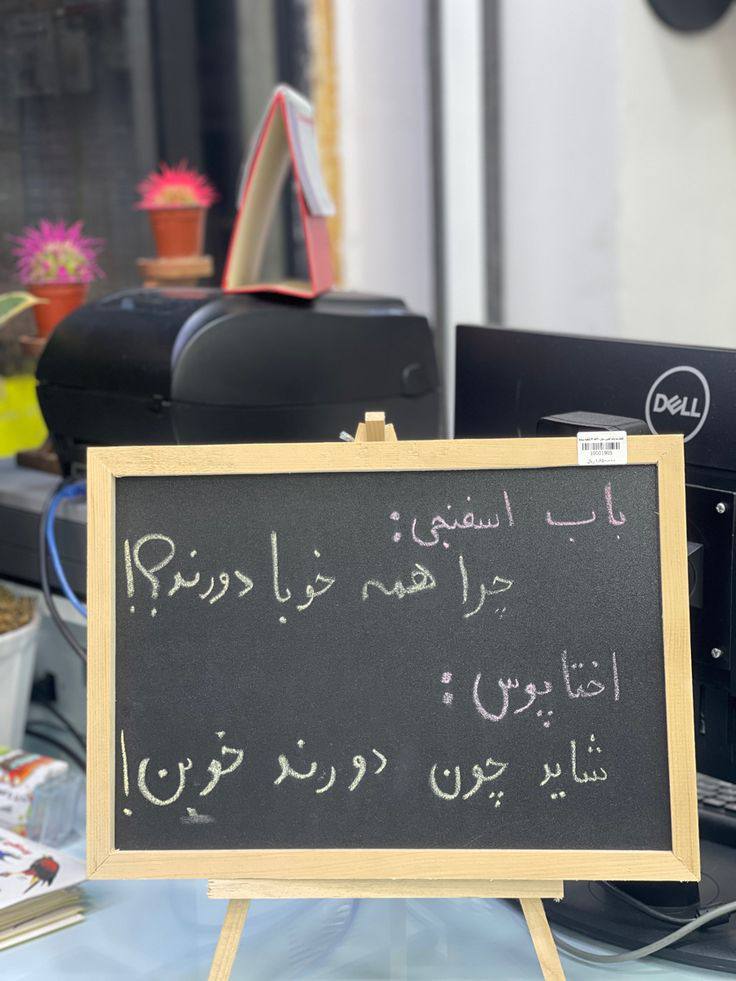 باب اسفنجی:
چرا همه خوبا دورند؟!
اختاپوس:
شاید چون دورند خوبن!
DELL
10001905